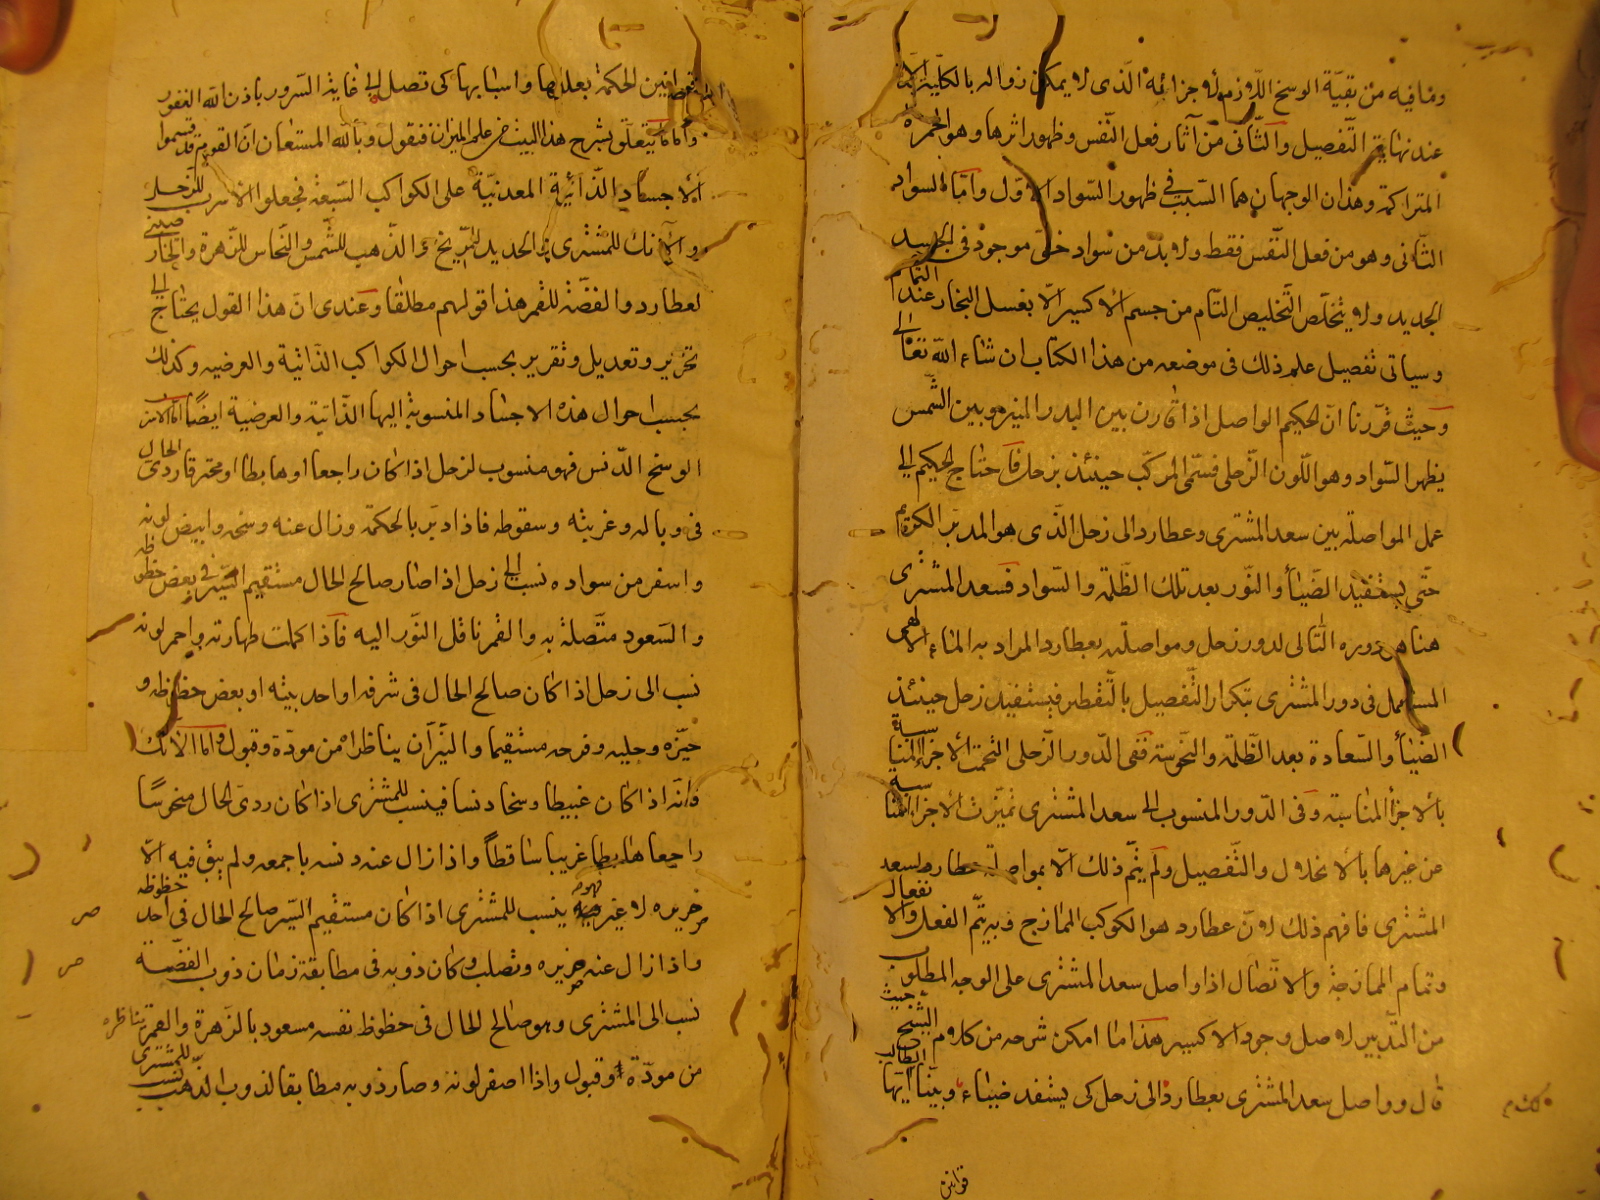 ومافيه من بقيّة الوسخ اللازم لاجزائه الّذى لا يمكن زواله بالكليّة الّا
عند نهاية التّفصيل والثّانى من آثار فعل النّفس وظهور اثرها وهو الحمرة
المتراكمة وهذان الوجهان هما السّبب فى ظهور السّواد الاوّل وامّا السواد
الثّانى وهو من فعل النّفس فقط ولا بدّ من سواد خفىّ موجود فى الجسد
الجديد ولا يتخلّص التّخليص التّام من جسم الاكسير الّا بغسل البخار عند التّمام
وسياتى تفصيل علم ذلك فى موضعه من هذا الكتاب ان شاء اللّه تعالى
وحيث قرّرنا انّ الحكيم الواصل اذا قارن بين البدر المنير وبين الشّمس
يظهر السّواد وهو اللّون الزّحلى فسمّى المركّب حينئذ بزحل فاحتاج الحكيم الى
عمل المواصلة بين سعد المشترى وعطارد الى زحل الّذى هو المدبّر
حتّى يستفيد الضّياء والنّور بعد تلك الظّلمة والسّواد فسعد المشترى
هنا هو دوره التّالى لدور زحل ومواصلته بعطارد المراد به الماء الالهى
المستعمل فى دور المشترى بتكرار التّفصيل بالتّقطير فيستفيد زحل حينئذ
الضّياء والسّعادة بعد الظّلمة والنّحوسة ففى الدّور الزّحلى التحمت الاجزاء المناسبة
بالاجزاء المناسبة وفى الدّور المنسوب الى سعد المشترى تميّزت الاجزاء المناسبة
من غيرها بالانحلال والتّفصيل ولم يتمّ ذلك الّا بمواصلة عطارد لسعد
المشترى فافهم ذلك لانّ عطارد هو الكوكب الممازج وبه يتمّ الفعل والانفعال
وتمام الممازجة والاتّصال اذا واصل سعد المشترى على الوجه المطلوب
من التّدبير لاصل وجود الاكسير هذا ما امكن شرحه من كلام الشّيخ حيث
قال وواصل سعد المشترى بعطارد الى زحل كى يستفد ضياء وبيّنا ايّها الطالب
قوانين
قوانين الحكمة بعللها واسبابها كى تصل الى غاية السّرور باذن اللّه الغفور
وامّا ما يتعلّق بشرح هذا البيت من علم الميزان فنقول وباللّه المستعان انّ القوم قد قسموا
الاجساد الذّائبة المعدنيّة على الكواكب السّبعة فجعلوا الاسرب للزّحل
والآنك للمشترى والحديد للمرّيخ والذّهب للشّمس والنّحاس للزّهرة والخارصينى
لعطارد والفضّة للقمر هذا قولهم مطلقا وعندى انّ هذا القول يحتاج الى
تحرير وتعديل وتقرير بحسب احوال الكواكب الذّاتية والعرضيه وكذلك
بحسب احوال هذه الاجساد المنسوبة اليها الذّاتية والعرضية ايضًا امّا الاسرب
الوسخ الدّنس فهو منسوب لزحل اذا كان راجعا او هابطا او محترقا ردى الحال
فى وباله وغربته وسقوطه فاذا دبّر بالحكمة وزال عنه وسخه وابيض لونه
واسفر من سواده نسب الى زحل اذا صار صالح الحال مستقيم السّير فى بعض حظوظه
والسّعود متّصلة به والقمر ناقل النّور اليه فاذا كملت طهارته واحمر لونه
نسب الى زحل اذا كان صالح الحال فى شرفه او احد بيته او بعض حظوظه و
حيّزه وحلبه وفرحه مستقيما والنّيّران يناظراه من مودّة وقبول وامّا الآنك
فانّه اذا كان غبيطا وسخا دنسا فينسب للمشترى اذا كان ردى الحال منحوسًا
راجعا هابطا غريبا ساقطاً واذا زال عنه دنسه باجمعه ولم يبق فيه الّا
صريره لا غير فهو ينسب للمشترى اذا كان مستقيم السّير صالح الحال فى احد حظوظه
واذا زال عنه صريره وتصلب وكان ذوبه فى مطابقة زمان ذوب الفضّة
نسب الى المشترى وهو صالح الحال فى حظوظ نفسه مسعود بالزّهرة والقمر تناظره
من مودّة وقبول واذا اصفر لونه وصار ذوبه مطابقا لذوب الذّهب نسب للمشترى